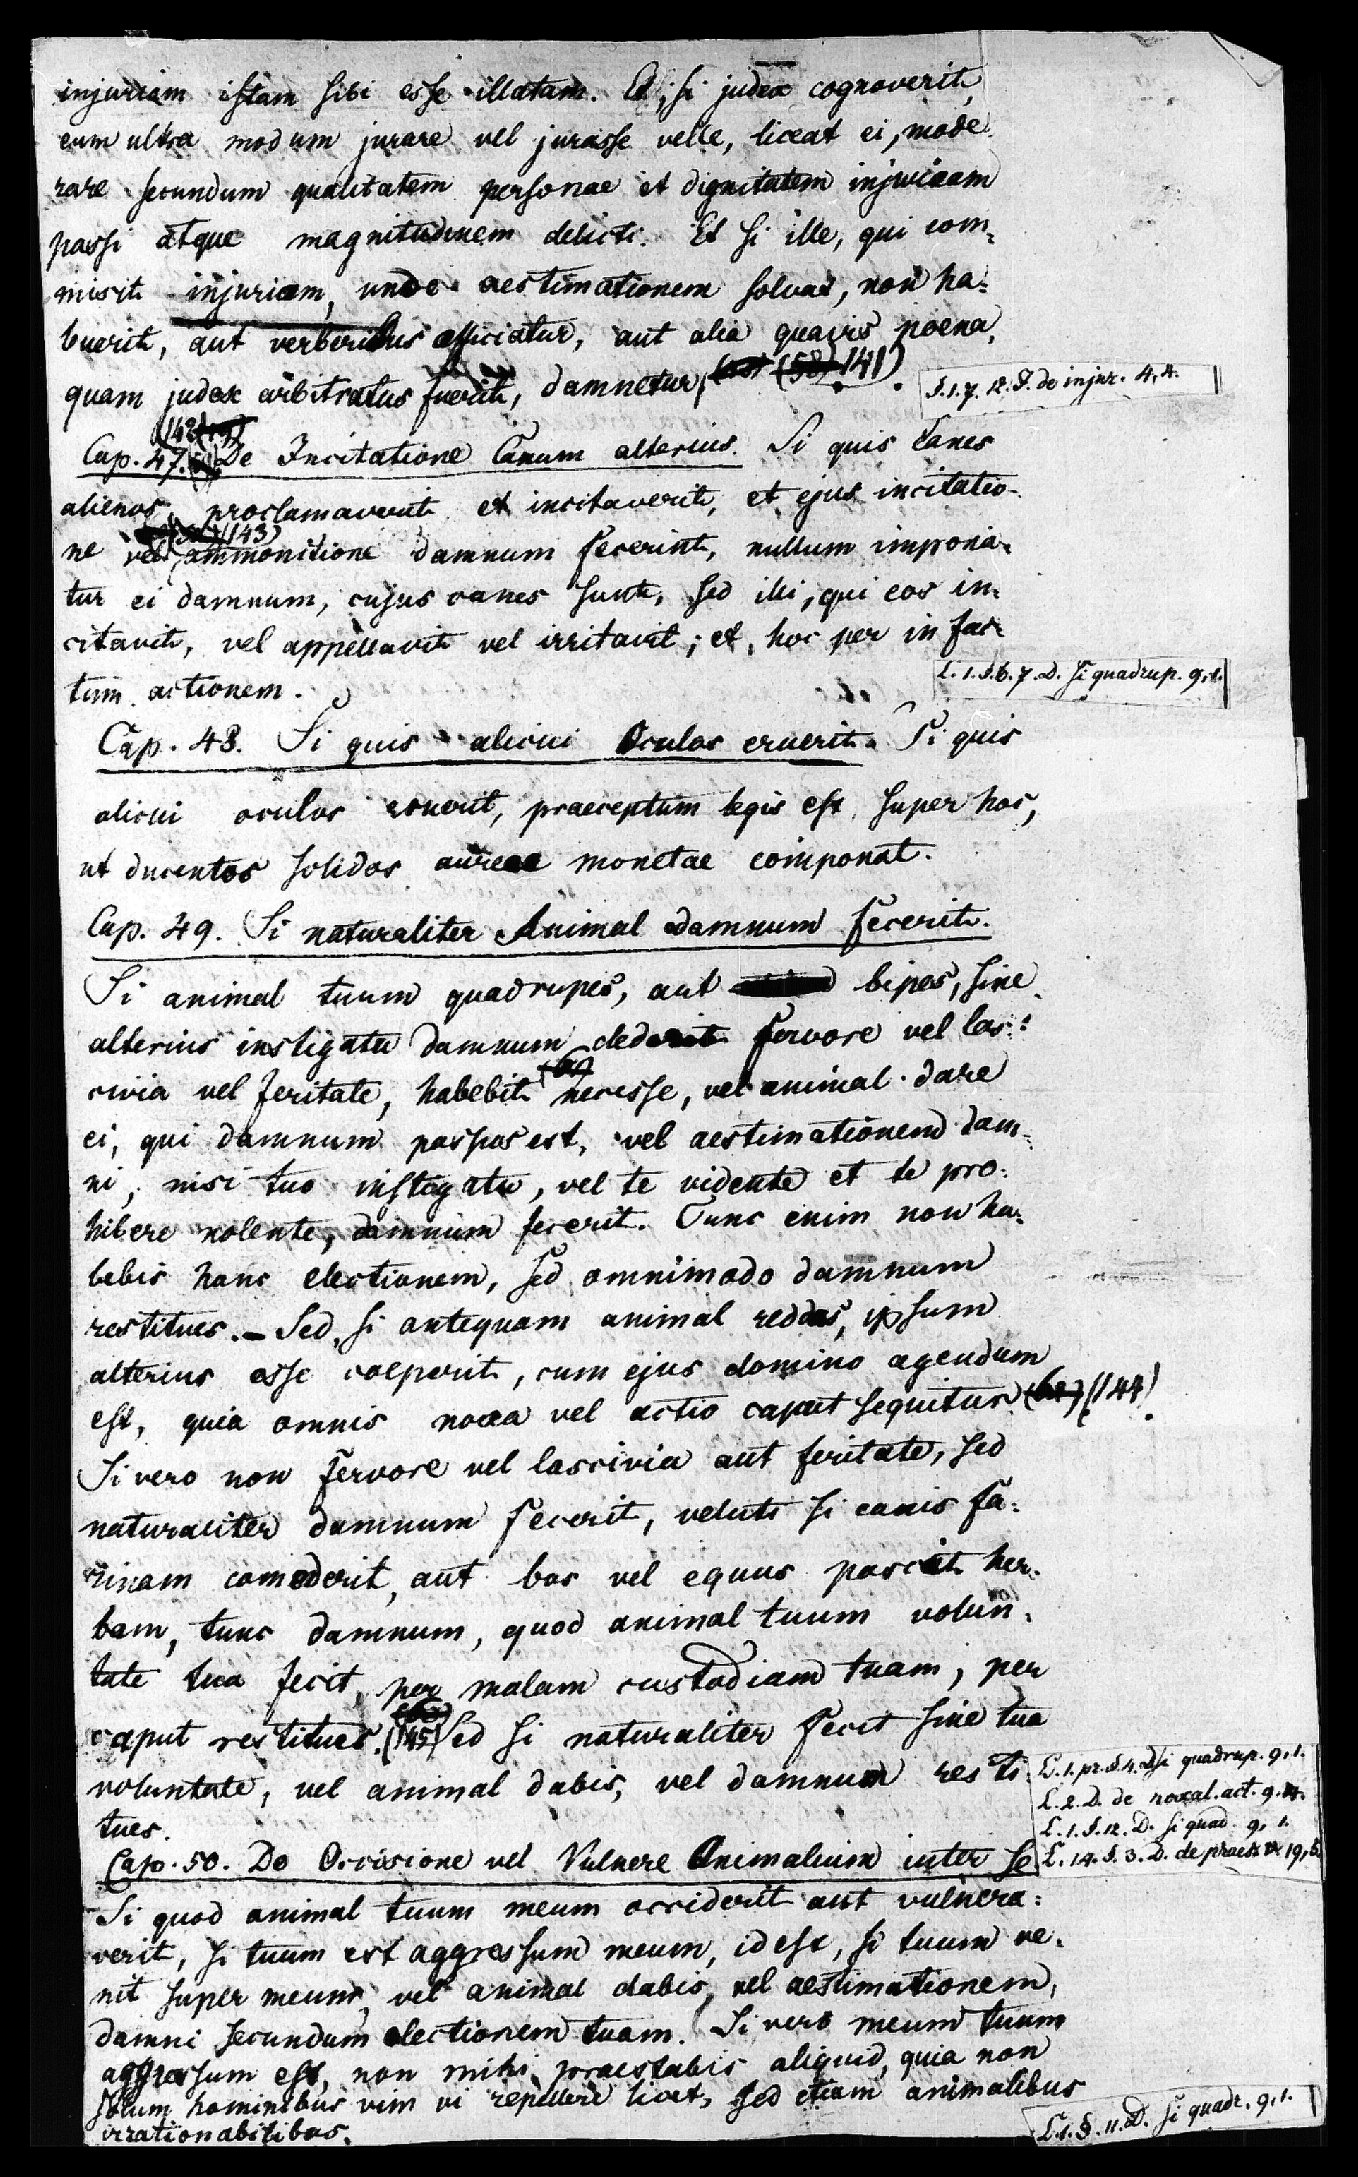 injuriam istam sibi esse illatam. Et, si judex cognoverit,
eum ultra modum jurare vel jurasse velle, liceat ei, mode-
rare secundum qualitatem personae et dignitatem injuriam
passi atque magnitudinem delicti. Et si ille, qui com-
misit injuriam, unde aestimationem solvat, non ha-
buerit, aut verberibus afficiatur, aut alia quavis poena,
quam judex arbitratus fuerit, damnetur, (58) (141).
§.1.7.12. J. de injur. 4,4.
(142)
Cap. 47. De Incitatione Canum alterius. Si quis Canes
alienos proclamaverit et incitaverit, et ejus incitatio-
(143)
ne vel ammonitione damnum fecerint, nullum impona-
tur ei damnum, cujus canes sunt, sed illi, qui eos in-
citavit, vel appellavit vel irritavit; et, hoc per in fac-
tum actionem.
L. 1. §. 6. 7. D. Si quadrup. 9,1.
Cap. 48. Si quis alicui Oculos eruerit. Si quis
alicui oculos eruerit, praeceptum legis est super hos,
ut ducentos solidos aureae monetae componat.
Cap. 49. Si naturaliter Animal damnum fecerit.
Si animal tuum quadrupes, aut bipes, sine
alterius instigatu damnum dederit fervore vel las-
civia vel feritate, habebit necesse, vel animal dare
ei, qui damnum passus est, vel aestimationem dam-
ni, nisi tuo instigatu, vel te vidente et te pro-
hibere nolente, damnum fecerit. Tunc enim non ha-
bebis hanc electionem, sed omnimodo damnum
restitues. – Sed, si antequam animal reddas, ipsum
alterius esse coeperit, cum ejus domino agendum
est, quia omnis noxa vel actio caput sequitur (62) (144).
Si vero non fervore vel lascivia aut feritate, sed
naturaliter damnum fecerit, veluti si canis fa-
rinam comederit, aut bos vel equus pascit her-
bam, tunc damnum, quod animal tuum volun-
tate tua fecit, per malam custodiam tuam, per
caput restitues. (145) Sed si naturaliter fecit sine tua
voluntate, vel animal dabis, vel damnum resti-
tues.
L. 1. pr. §. 4. D. si quadrup. 9,1.
L. 2. D. de noxal. act. 9.4.
L. 1. §. 12. D. si quad. 9,1.
L. 14. §. 3. D. de praesc. v. 19,5.
Cap. 50. De Occisione vel Vulnere Animalium inter se
Si quod animal tuum meum occiderit aut vulnera-
verit, si tuum est aggressum meum, id est, si tuum ve-
nit super meum, vel animal dabis, vel aestimationem,
damni secundum electionem tuam. Si vero meum tuum
aggressum est, non mihi praestabis aliquid, quia non
solum hominibus vim vi repellere licet, sed etiam animalibus
irrationabilibus.
L. 1. §. 11. D. Si quadr. 9,1.